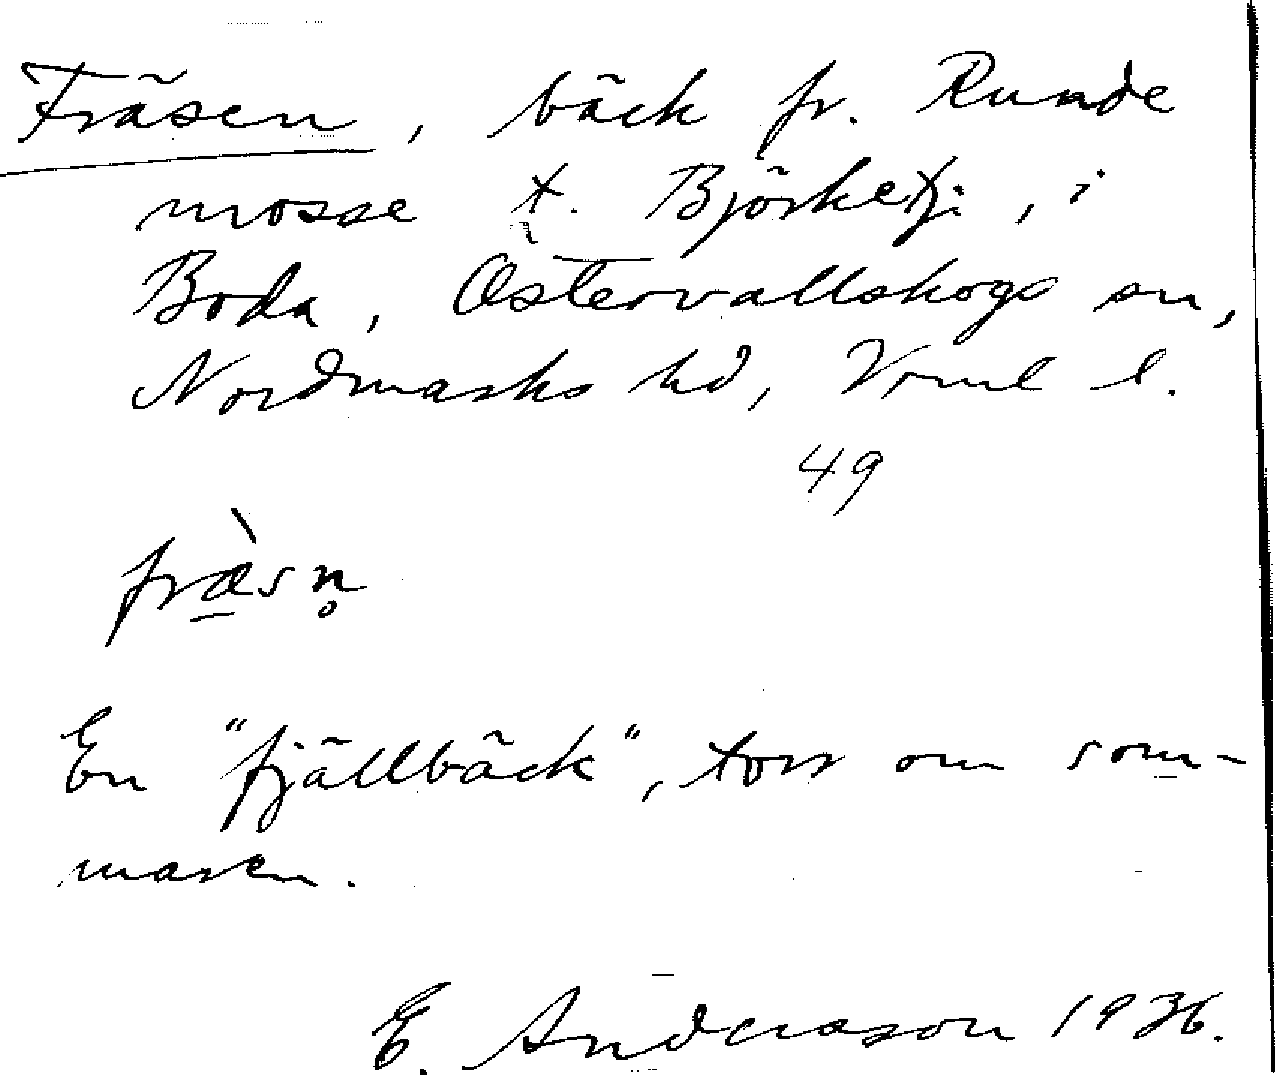 Fräsen, bäck fr. Runde
mosse t. Björketj:, i
Boda, Östervallskogs sn,
Nordmarks hd, Vrml l.
49
fræ̀sn̥
En "fjällbäck", torr om som-
maren.
E. Andersson 1936.